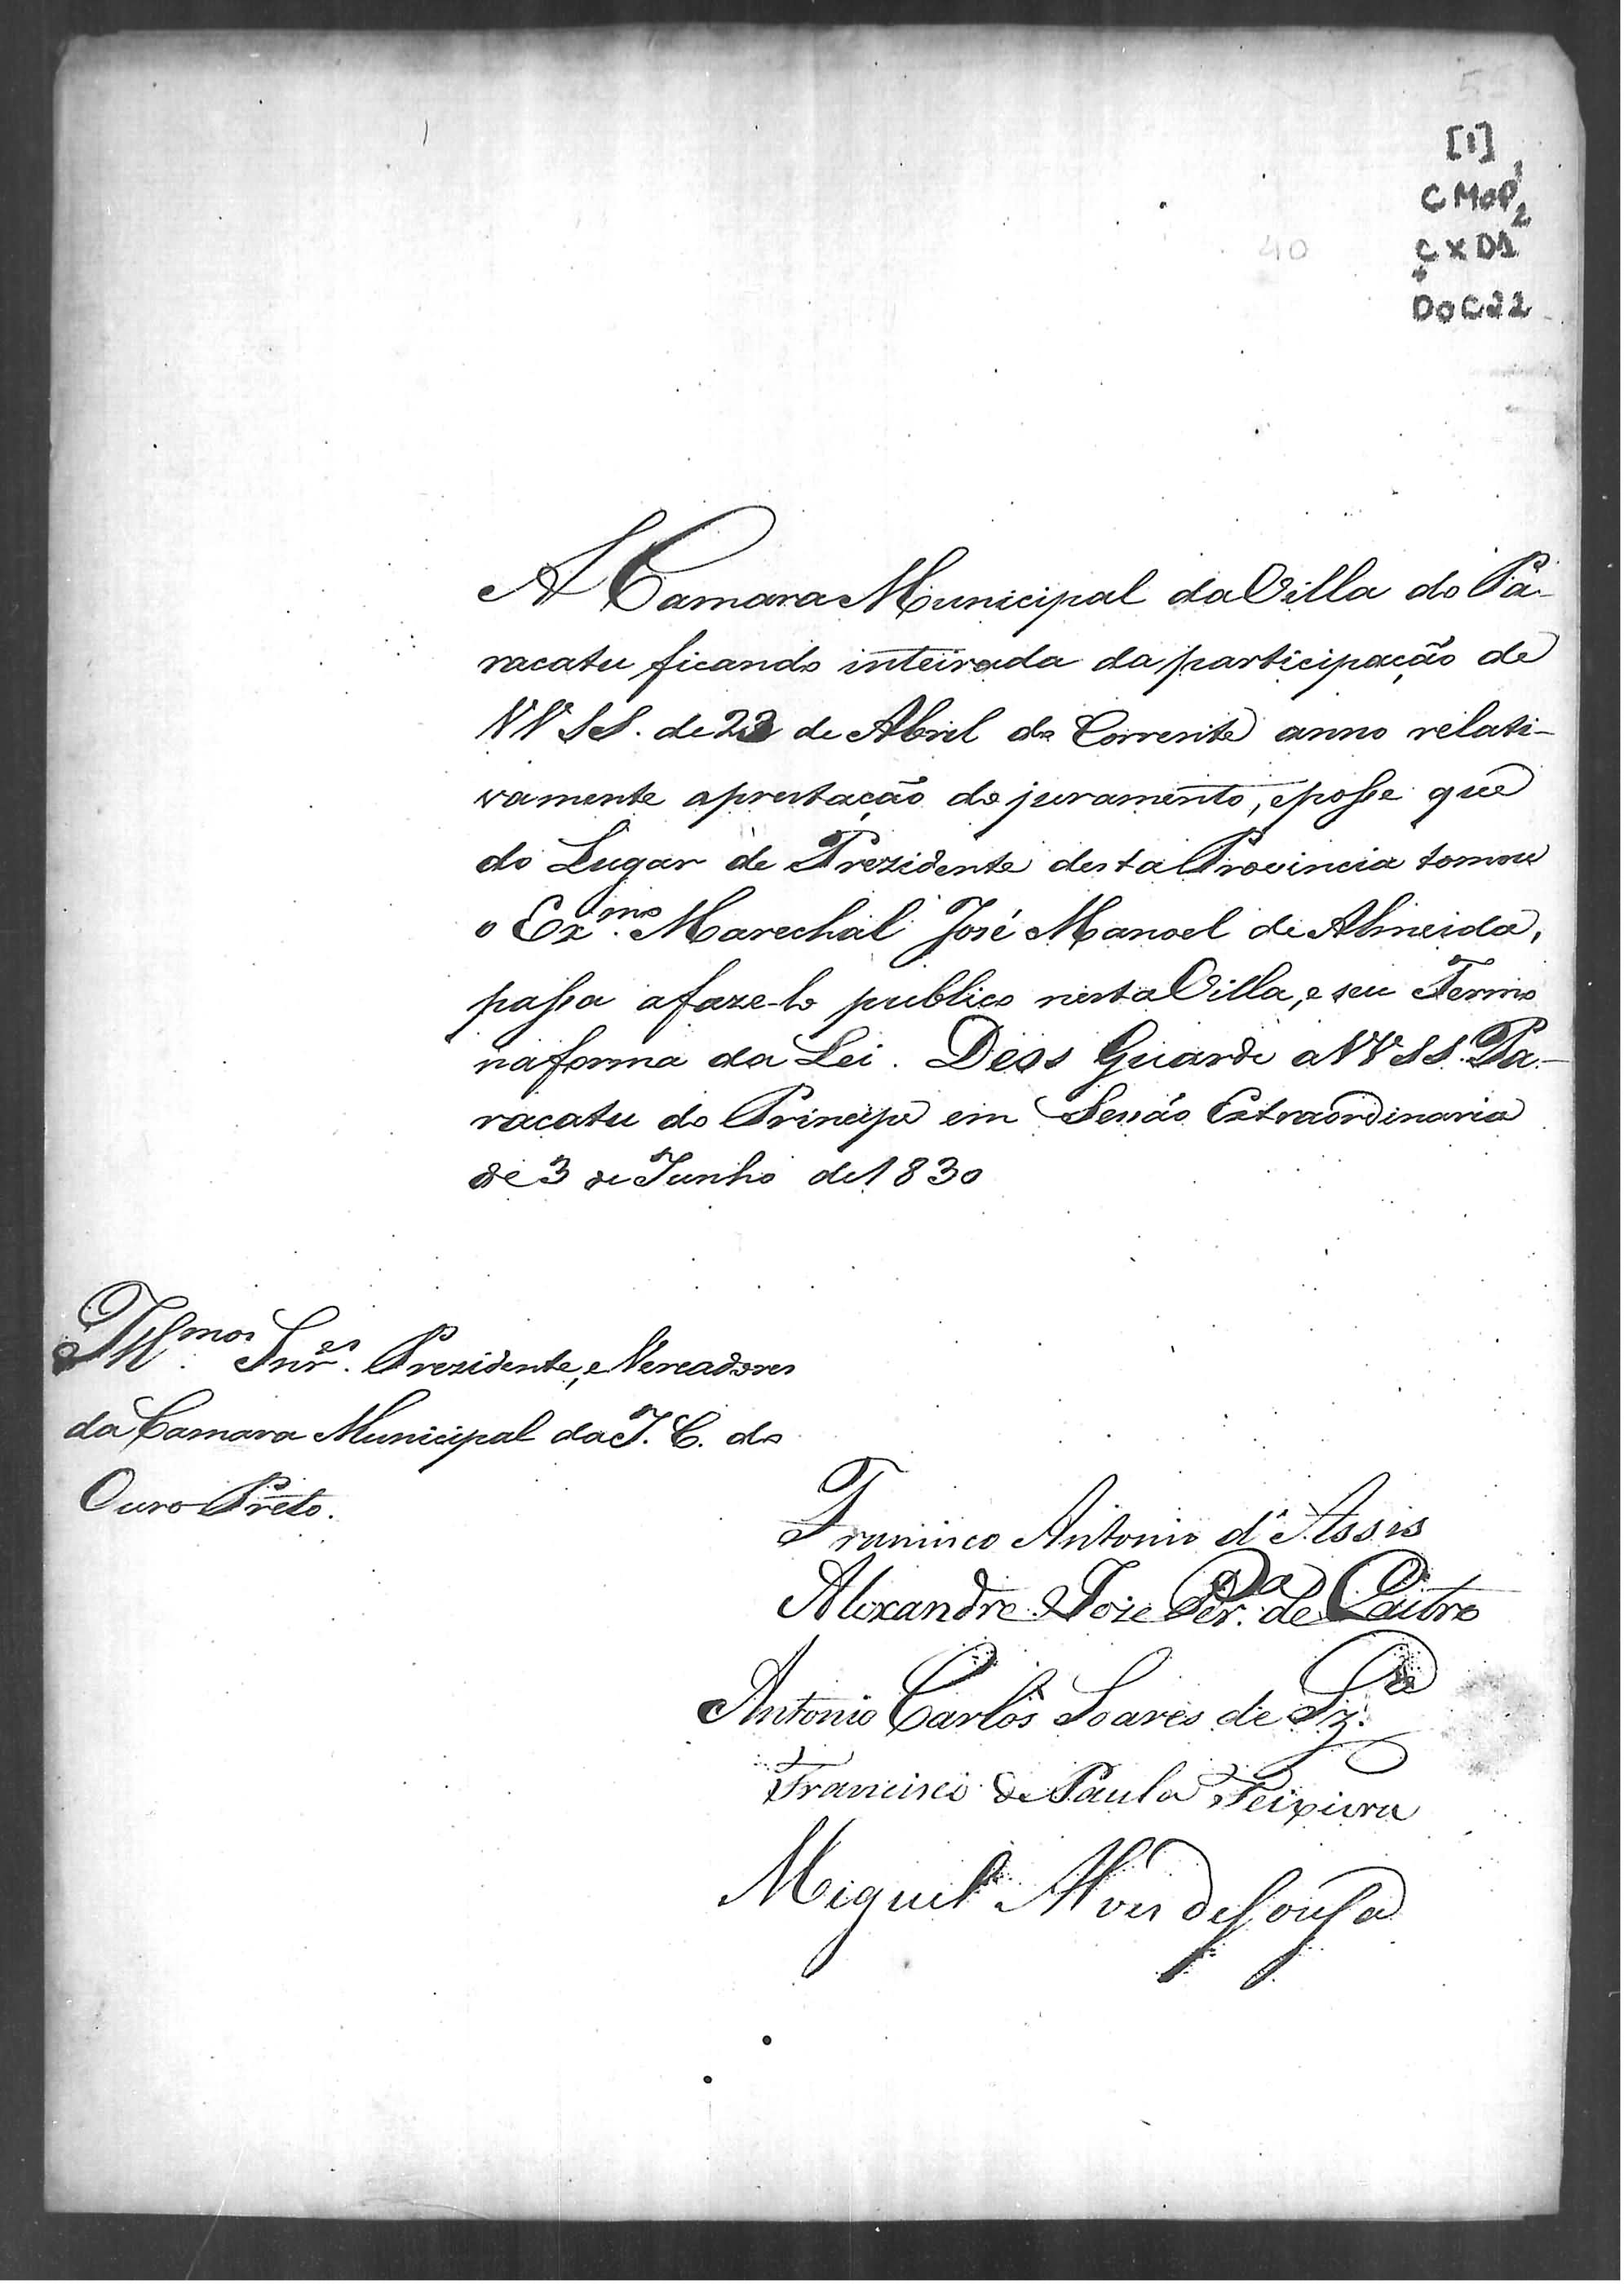 [1]
CMOP 1/2
CX 01
DOC 22
40
A Camara Municipal da Villa do Pa-
racatu ficando inteirada da participação de
VV SS. de 23 de Abril do Corrente anno relati-
vamente aprestação do juramento, eposse que
do Lugar de Prezidente desta Provincia tomou
o Exmo. Marechal José Manoel de Almeida,
passa afaze-lo publico nesta Villa, e seu Termo
na forma da Lei. Deos Guarde a VV SS. Pa-
racatu do Principe em Sessão Extraordinaria
de 3 de Junho de 1830
Illmos. Snres. Prezidente, e Vereadores
da Camara Municipal da I. C. do
Ouro Preto.
Francisco Antonio d'Assis
Alexandre Joze Per.a de Castro
Antonio Carlos Soares de Sz.a
Francisco de Paula Teixeira
Miguel Alves de Sousa